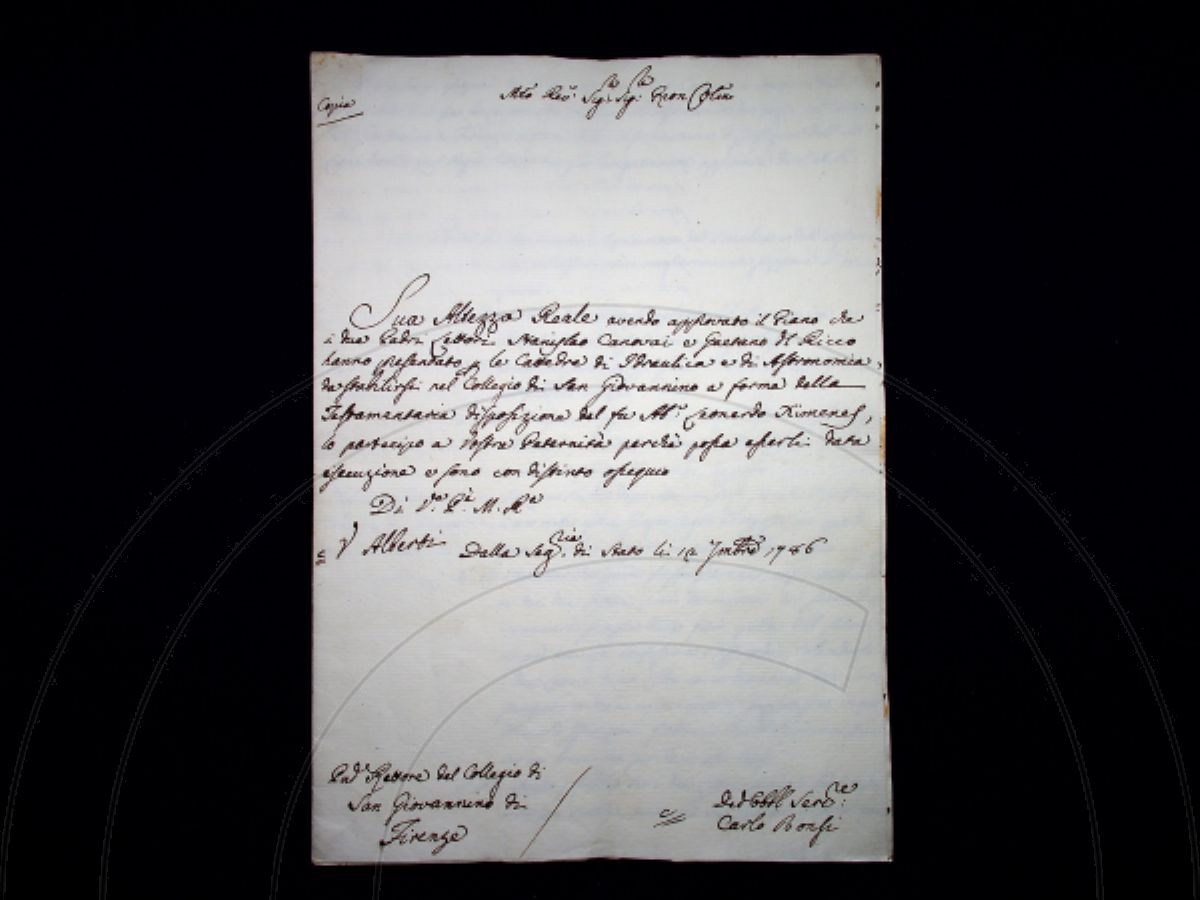 Copia
Mto Revdo Sigr. Sigr. Pron Colmo
Sua Altezza Reale avendo approvato il Piano che
i due Padri Lettori Stanislao Canovai e Gaetano del Ricco
hanno presentato p le Cattedre di Idraulica e di Astronomia,
da stabilirsi nel Collegio di San Giovannino a forma della
Testamentaria disposizione del fu Abe. Leonardo Ximenes,
lo partecipo a Vostra Paternità perchè possa esserli data
esecuzione e sono con distinto ossequio
Di V.a P.tà M. R.a
V Alberti
Dalla Segria. di Stato li 12 7mbre 1786
Pad. Rettore del Collegio di
San Giovannino di
Firenze
Devo Obbl Serre:
Carlo Bonsi